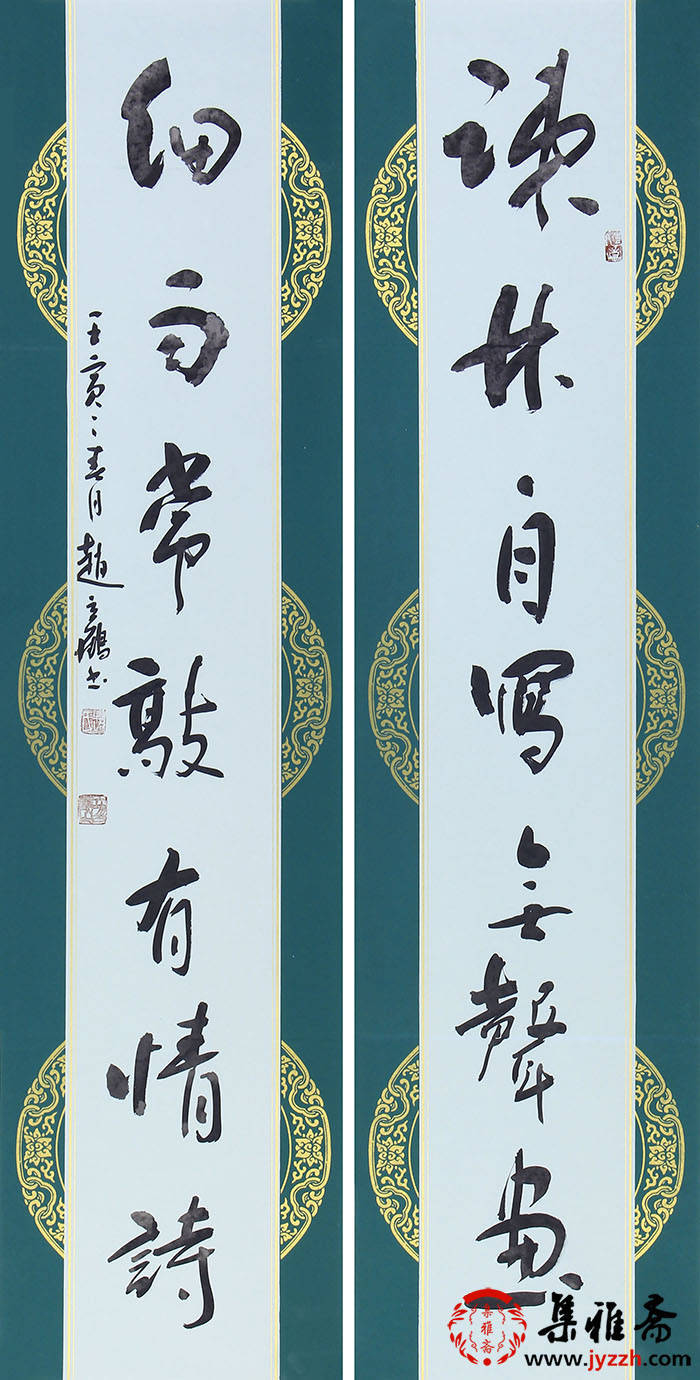 踈林自寫無聲畫
細雨常敲有情詩
壬寅之春月趙
集雅斋
集雅斋
www.jyzzh.com